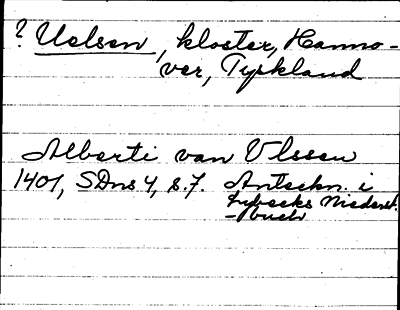 ? Uelsen, kloster, Hanno-
ver, Tyskland
Alberti van Vlssen
1401, SDns 4, s. 7. Anteckn. i
Lybecks Niederst.
-buch